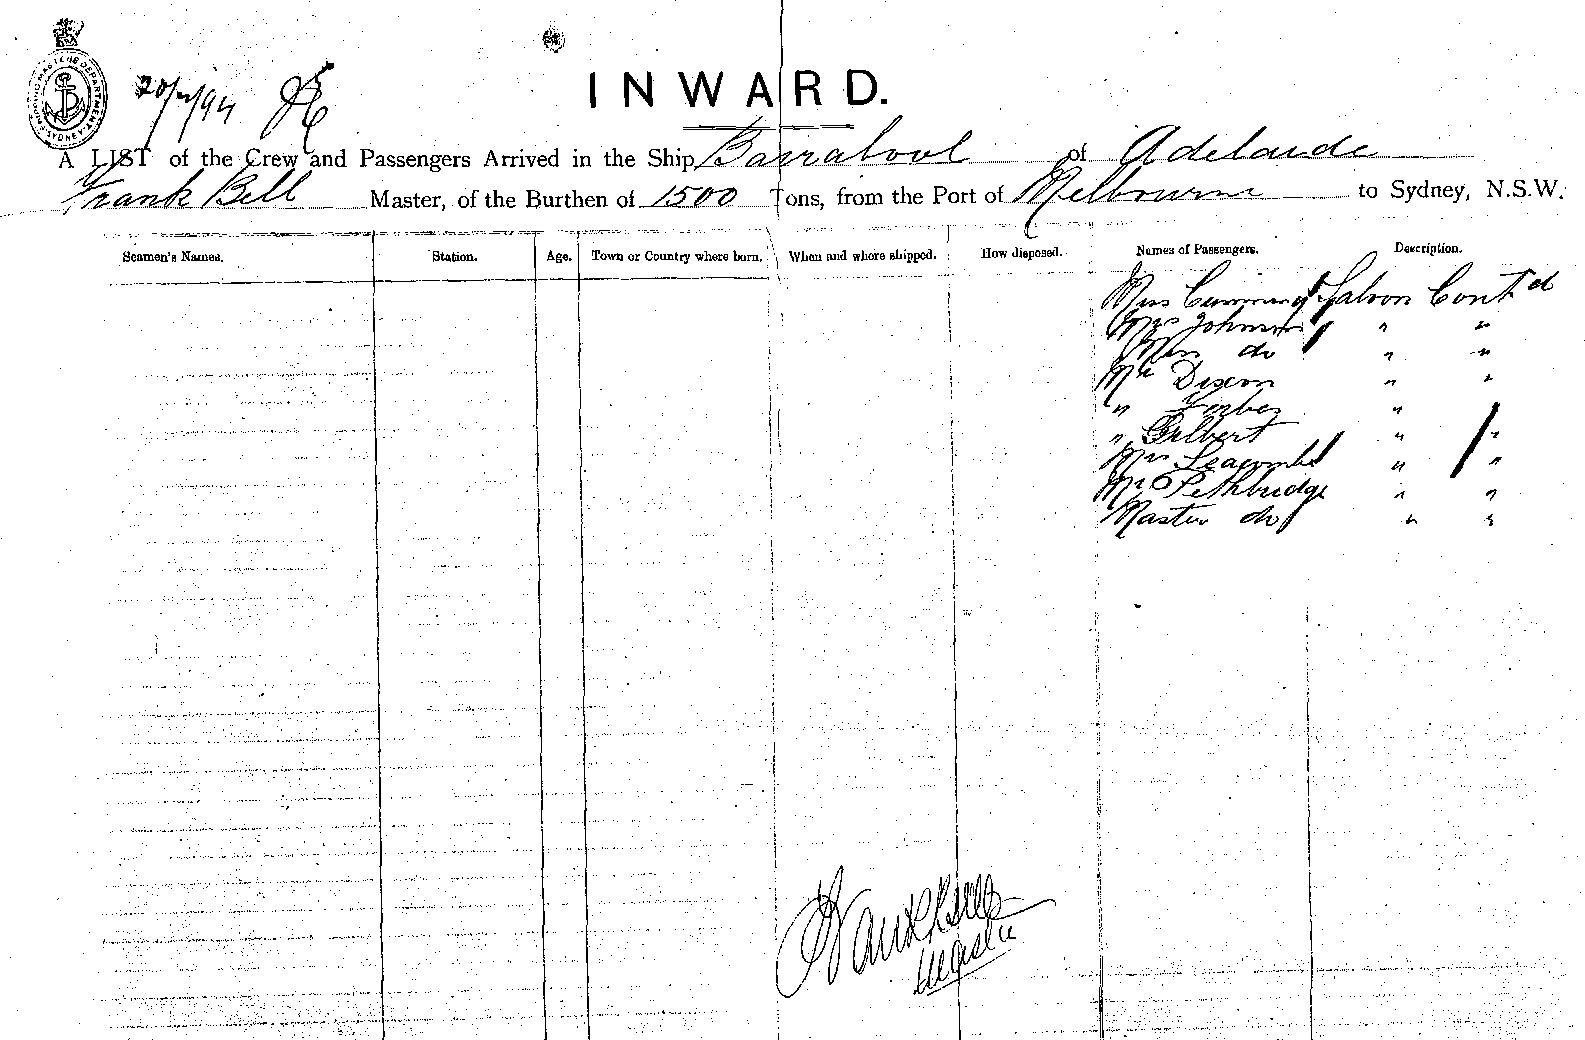 SHIPPING MASTERS DEPARTMENT SYDNEY
INWARD.
A LIST of the Crew and Passengers Arrived in the Ship Barrabool of Adelaide
Frank Bell Master, of the Burthen of 1500 Tons, from the Port of Melbourne to Sydney, N.S.W.
Seamen's Names. Station. Age. Town or Country where born. When and where shipped. How disposed. Names of Passengers. Description.
Miss Cumming Saloon Cont'd
Mrs Johnson " "
Miss do " "
Mr Dixon " "
" Forbes "
" Gilbert " "
Seacombe " "
Pethbridge " "
Master do " "
Frank Bell
Master